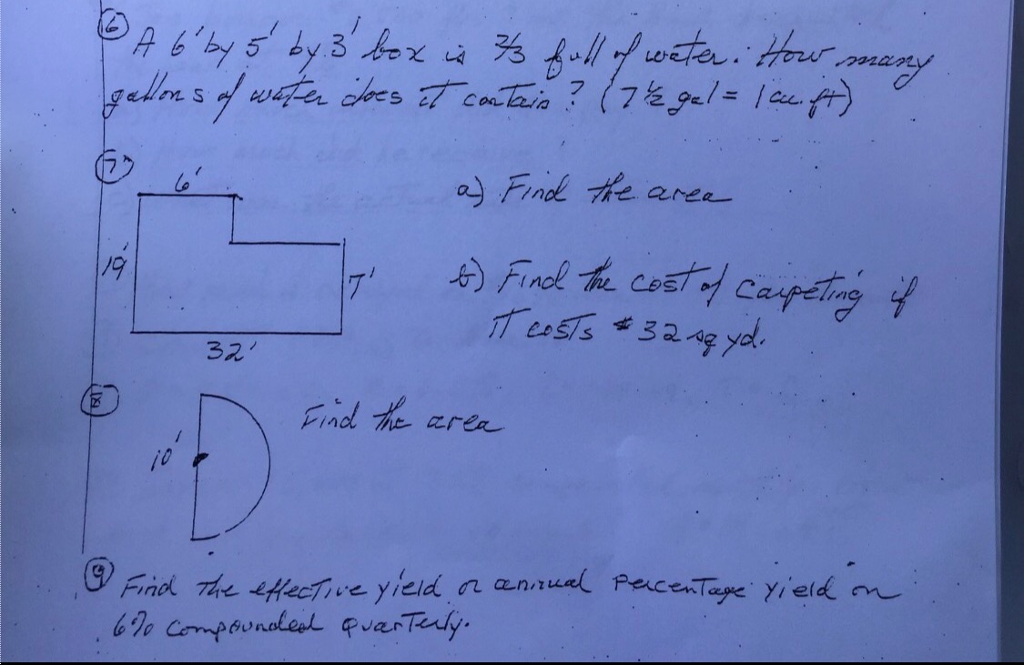 6 A 6' by 5' by 3' box is 2/3 full of water. How many
gallons of water does it contain? (7 1/2 gal = 1 cu. ft)
7
6'
a) Find the area
19'
7'
b) Find the cost of carpeting if
it costs $32 sq yd.
32'
8
Find the area
10'
9 Find the effective yield or annual percentage yield on
6% compounded quarterly.